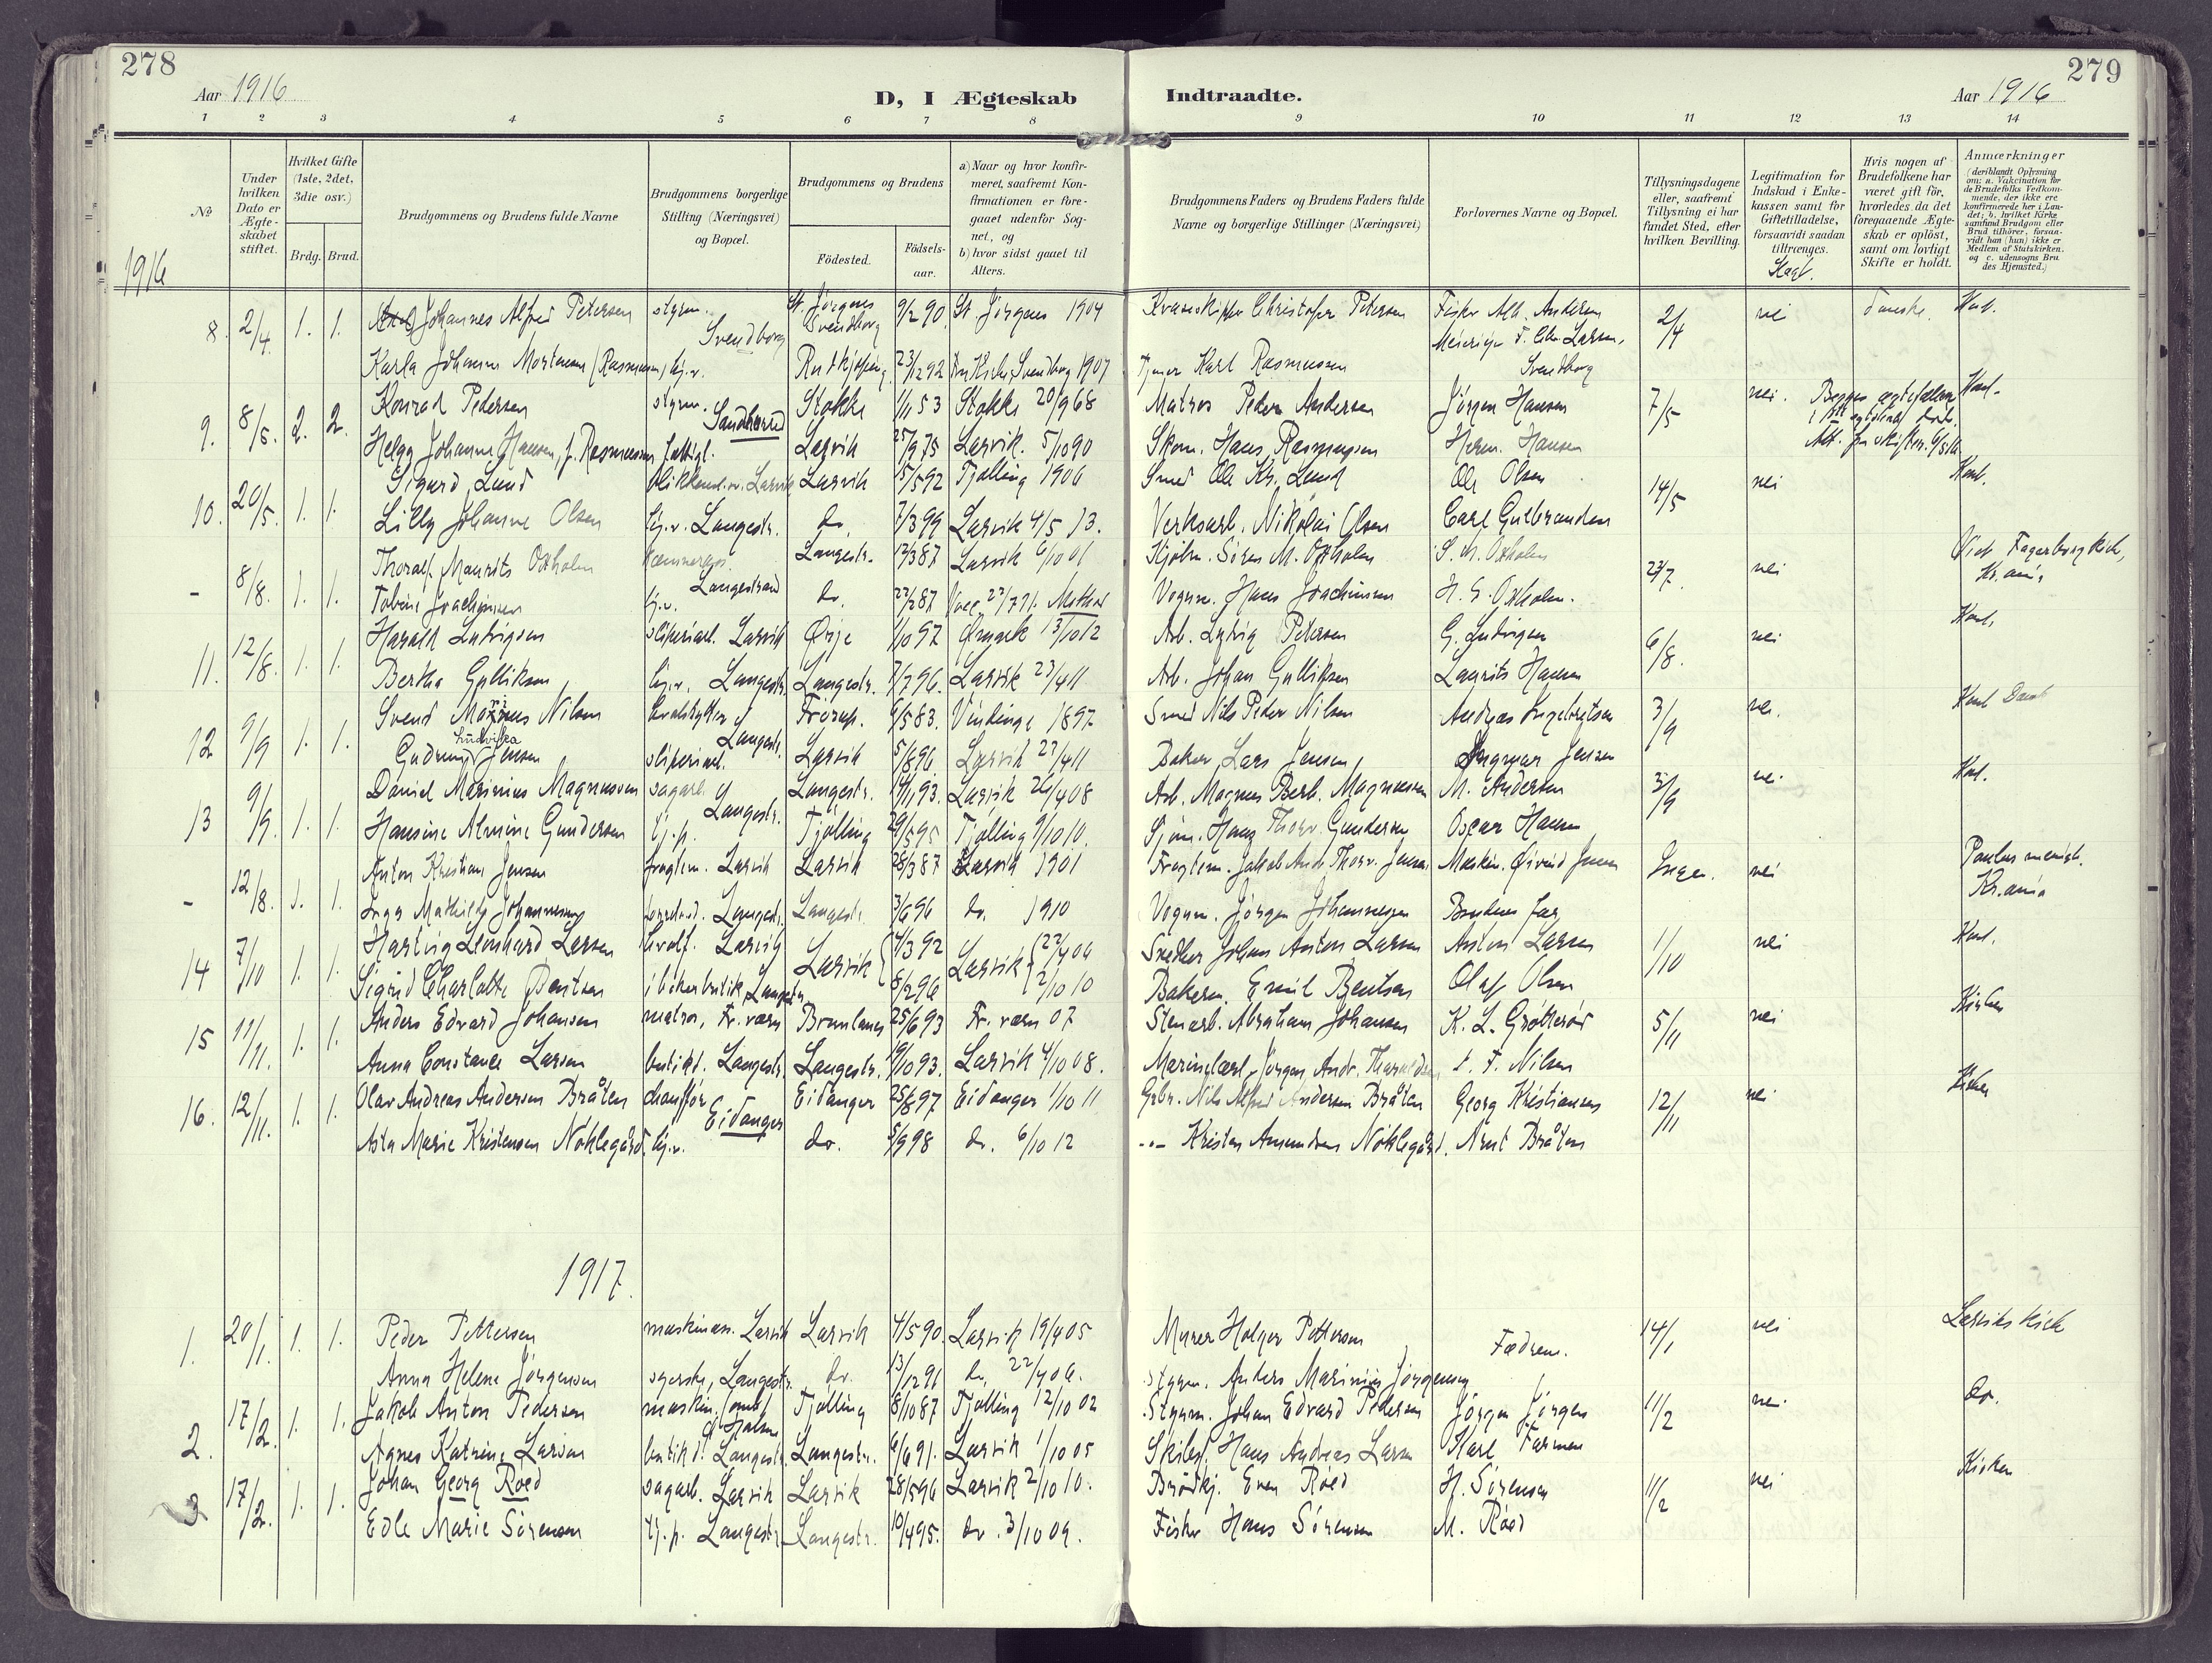 278
Aar 1916
D, I Ægteskab
Indtraadte.
Aar 1916
279
1 2 3 4 5 6 7 8 9 10 11 12 13 14
№
Under hvilken Dato er Ægteskabet stiftet.
Hvilket Gifte (1ste, 2det, 3die osv.)
Brdg. Brud.
Brudgommens og Brudens fulde Navne
Brudgommens borgerlige Stilling (Næringsvei) og Bopæl.
Brudgommens og Brudens
Födested.
Födselsaar.
a) Naar og hvor konfirmeret, saafremt Konfirmationen er foregaaet udenfor Sognet, og
b) hvor sidst gaaet til Alters.
Brudgommens Faders og Brudens Faders fulde Navne og borgerlige Stillinger (Næringsvei)
Forlovernes Navne og Bopæl.
Tillysningsdagene eller, saafremt Tillysning ei har fundet Sted, efter hvilken Bevilling.
Legitimation for Indskud i Enkekassen samt for Giftetilladelse, forsaavidt saadan tiltrænges.
Hvis nogen af Brudefolkene har været gift för, hvorledes da det foregaaende Ægteskab er oplöst, samt om lovligt Skifte er holdt.
Anmærkninger (deriblandt Oplysning om: a. Vakcination for de Brudefolks Vedkommende, der ikke ere konfirmerede her i Landet; b. hvilket Kirkesamfund Brudgom eller Brud tilhörer, forsaavidt han (hun) ikke er Medlem af Statskirken, og c. udensogns Brudes Hjemsted.)
1916
8. 2/4. 1. 1. Johannes Alfred Petersen styrm. Svendborg St. Jörgens Svendborg 9/2 90. St. Jörgens 1904 Christofer Petersen Fisker Alb. Andersen 2/4 nei danske.
Karla Johanne Mortensen (Rasmussen) hj.v. Rudkjöbing 23/12 92 Svendborg 1907 Karl Rasmussen Svendborg
9. 8/5. 2. 2. Konrad Pedersen styrm. Sandherred Stokke 1/1 53 Stokke 20/9 68 Matros Peder Andersen Jörgen Hansen 7/5 nei.
Helga Johanne Hansen, f. Rasmussen Larvik 25/9 75 Larvik. 5/10 90 Skom. Hans Rasmussen Herm. Hansen
10. 20/5. 1. 1. Sigurd Lund Larvik Larvik 15/5 92 Tjölling 1906 Smed Ole Kr. Lund Ole Olsen 14/5 nei
Lilly Johanne Olsen hj.v. Langestr. do. 7/3 99 Larvik 4/5 13. Verksarb. Nikolai Olsen Carl Gulbrandsen
- 8/8. 1. 1. Thoralf Maurits Oxholm Langestrand Langestr. 12/3 87 Larvik 6/10 01 Kjøbm. Sören M. Oxholm S. M. Oxholm 23/7. nei Fagerborg kirk, Kr.ania
hj.v. do. 22/2 87 Vogum. Hans Joachimsen H. S. Oxholm.
11. 12/8. 1. 1. Harald Ludvigsen sliperiarb. Larvik Ørje 1/10 97 Ømark 13/10 12 Arb. Ludvig Petersen G. Ludvigsen 6/8. nei
Bertha Gulliksen hj.v. Langestr. Langestr. 7/7 96. Larvik 23/4 11 Arb. Johan Gulliksen Laurits Hansen
12 9/9 1. 1. Svend Marinus Nilsen Langestr. Frörup. 6/5 83. Vindinge 1897 Smed Nils Peder Nilsen Andreas Ingebrigtsen 3/9 nei. Dansk
Gudrun Ludvika Jensen sliperiarb. Larvik 5/8 96. Larvik 23/4 11 Baker Lars Jensen Ingvar Jensen
13 9/9. 1. 1. Daniel Marinius Magnussen sagarb. Langestr. Langestr. 14/11 93. Larvik 26/4 08 Arb. Magnus Berb. Magnussen M. Andersen 3/9 nei
Hansine Almine Gundersen tj.p. Tjölling 29/5 95 Tjölling 9/10 10. Sjöm. Hans Thorv. Gundersen Oscar Hansen
- 12/8. 1. 1. Anton Kristian Jensen Larvik Larvik 28/3 87 Larvik 1901 Jakob Andr. Thorv. Jensen Maskin. Øivind Jensen Ingen. nei Paulus menigh. Kr.ania
Inga Mathilde Johannessen Langestr. Langestr. 3/6 96 do. 1910 Vogum. Jörgen Johannessen Brudens far
14 7/10 1. 1. Hartvig Leonhard Larsen Larvik Larvik 4/3 92 Larvik 22/4 06 Snedker Johan Anton Larsen Anton Larsen 1/10 nei
Sigrid Charlotte Bentsen i bakerbutik, Langestr. 8/2 96 2/10 10 Bakerm. Emil Bentsen Olaf Olsen
15 11/11. 1. 1. Anders Edvard Johansen matros, Fr.værn Brunlanes 25/6 93 Fr. værn 07 Stenarb. Abraham Johansen K. L. Grötteröd 5/11 nei Kirken
Anna Constance Larsen butikd. Langestr. Langestr. 19/10 93. Larvik 4/10 08. Jörgen Andr. T. F. Nilsen
16. 12/11. 1. 1. Olav Andreas Andersen Bråten chauffør Eidanger Eidanger 25/8 97 Eidanger 1/10 11 Gbr. Nils Alfred Andersen Bråten Georg Kristiansen 12/11 nei Kirken
Asta Marie Kristensen Nöklegård hj.v. do. 5/9 98 do. 6/10 12 -"- Kristen Amundsen Nöklegård. Arnt Bråten
1917.
1. 20/1. 1. 1. Peder Pettersen maskinas. Larvik Larvik 4/5 90. Larvik 19/4 05 Murer Holger Pettersen Fædrene. 14/1 nei Larviks kirke
Anna Helene Jörgensen syerske, Langestr. do. 13/12 91 do. 22/4 06. Styrm. Anders Marinius Jörgensen
2. 17/2. 1. 1. Jakob Anton Pedersen Tjölling 8/10 87 Tjölling 12/10 02 Styrm. Johan Edvard Pedersen Jörgen Jörgens 11/2 nei do.
Agnes Katrine Larsen butikd. Langestr. Langestr. 6/6 91. Larvik 1/10 05 Hans Andreas Larsen Karl Farmen
3 17/2. 1. 1. Johan Georg Roed sagarb. Larvik Larvik 28/5 96 Larvik 2/10 10. Brödkj. Even Röed H. Sörensen 11/2 nei Kirken
Edle Marie Sörensen tj.p. Langestr. Langestr. 10/4 95. do. 3/10 09. Fisker Hans Sörensen M. Röed